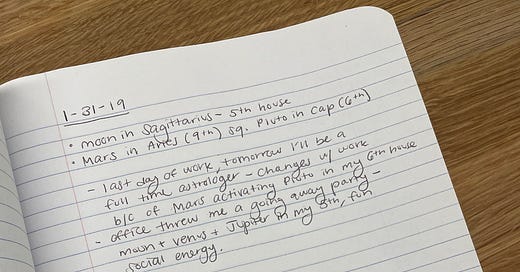 1-31-19
• moon in Sagittarius - 5th house
• Mars in Aries (9th) sq. Pluto in Cap (6th)
- last day of work, tomorrow I'll be a
full time astrologer - changes w/ work
b/c of Mars activating Pluto in my 6th house
- office threw me a going away party -
moon + venus + Jupiter in my 5th, fun
social energy.